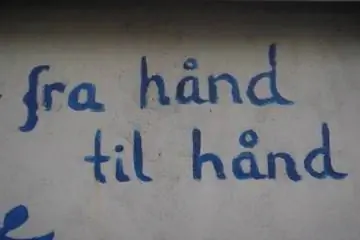 fra hånd
til hånd